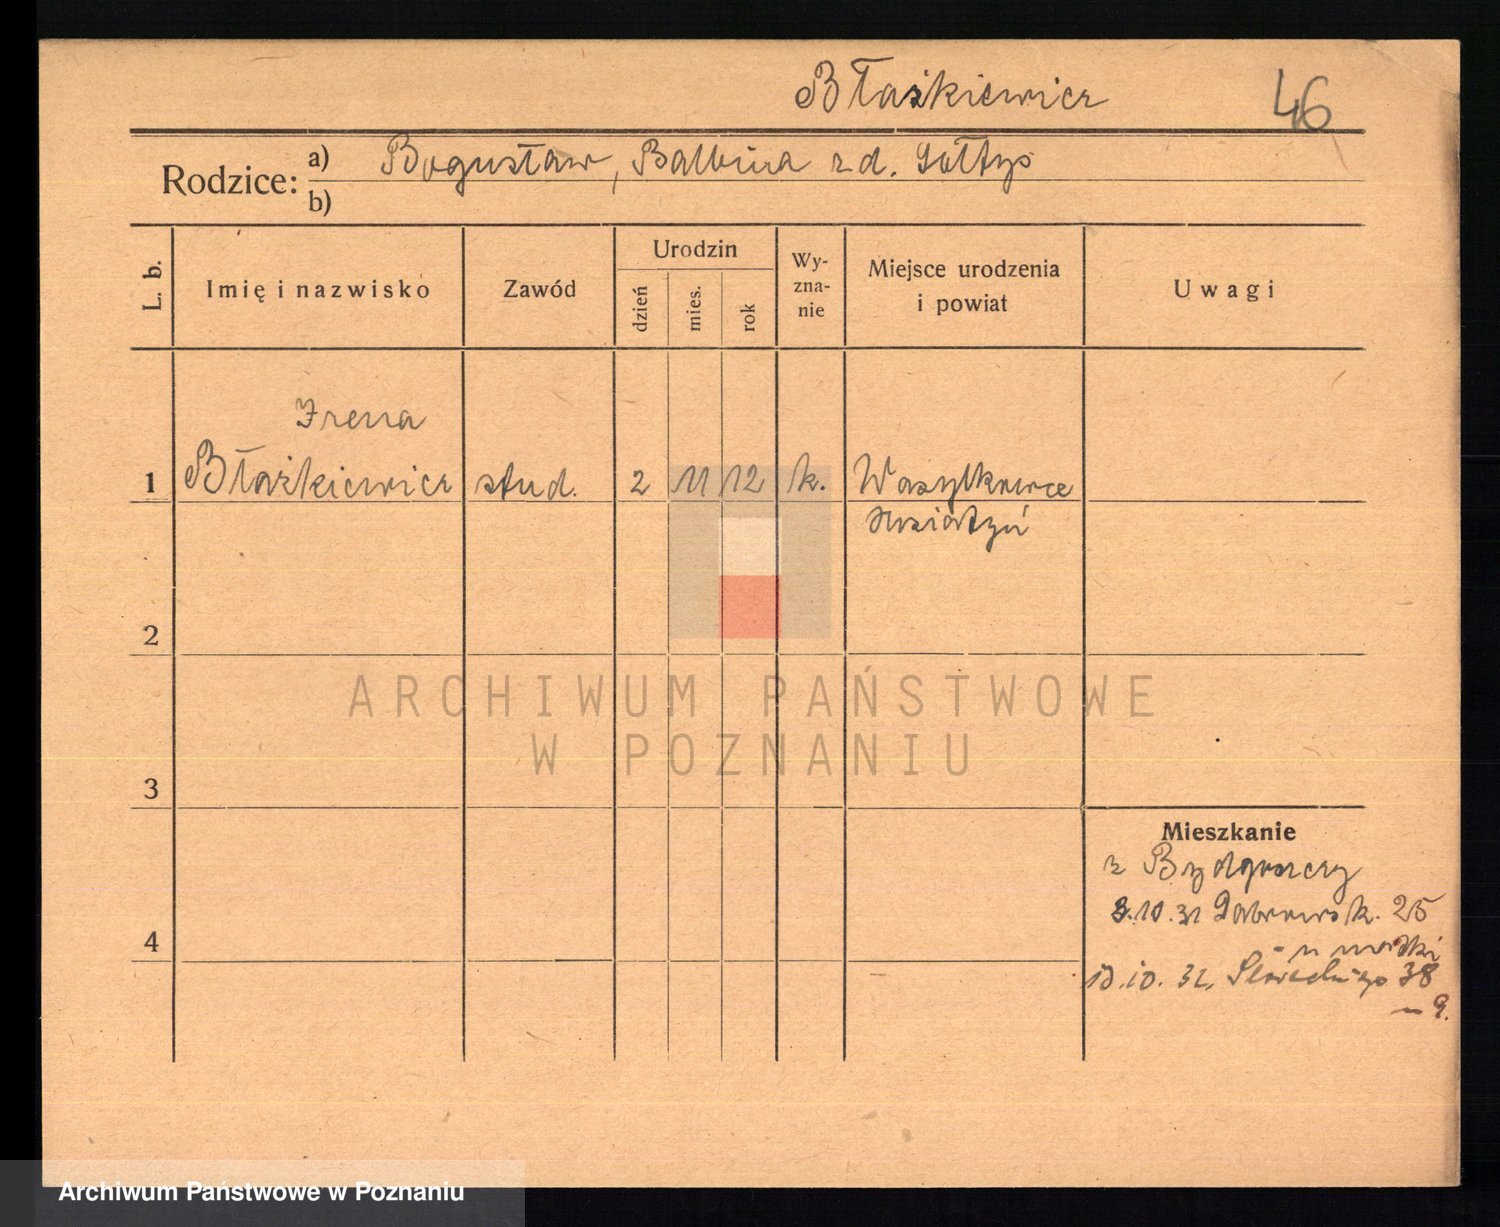 Błażkiewicz 46
Rodzice: a) Bogusław, Balbina z d. Sołtys
b)
L. b. Imię i nazwisko Zawód Urodzin dzień mies. rok Wy-zna-nie Miejsce urodzenia i powiat Uwagi
Irena
1 Błażkiewicz stud. 2 11 12 k. Wasylkowce
Husiatyń
2
ARCHIWUM PAŃSTWOWE
W POZNANIU
3
Mieszkanie
z Bydgoszczy
3.10.31 Dąbrowsk. 25
4
10.10.32, Słowackiego 38
– 9.
Archiwum Państwowe w Poznaniu